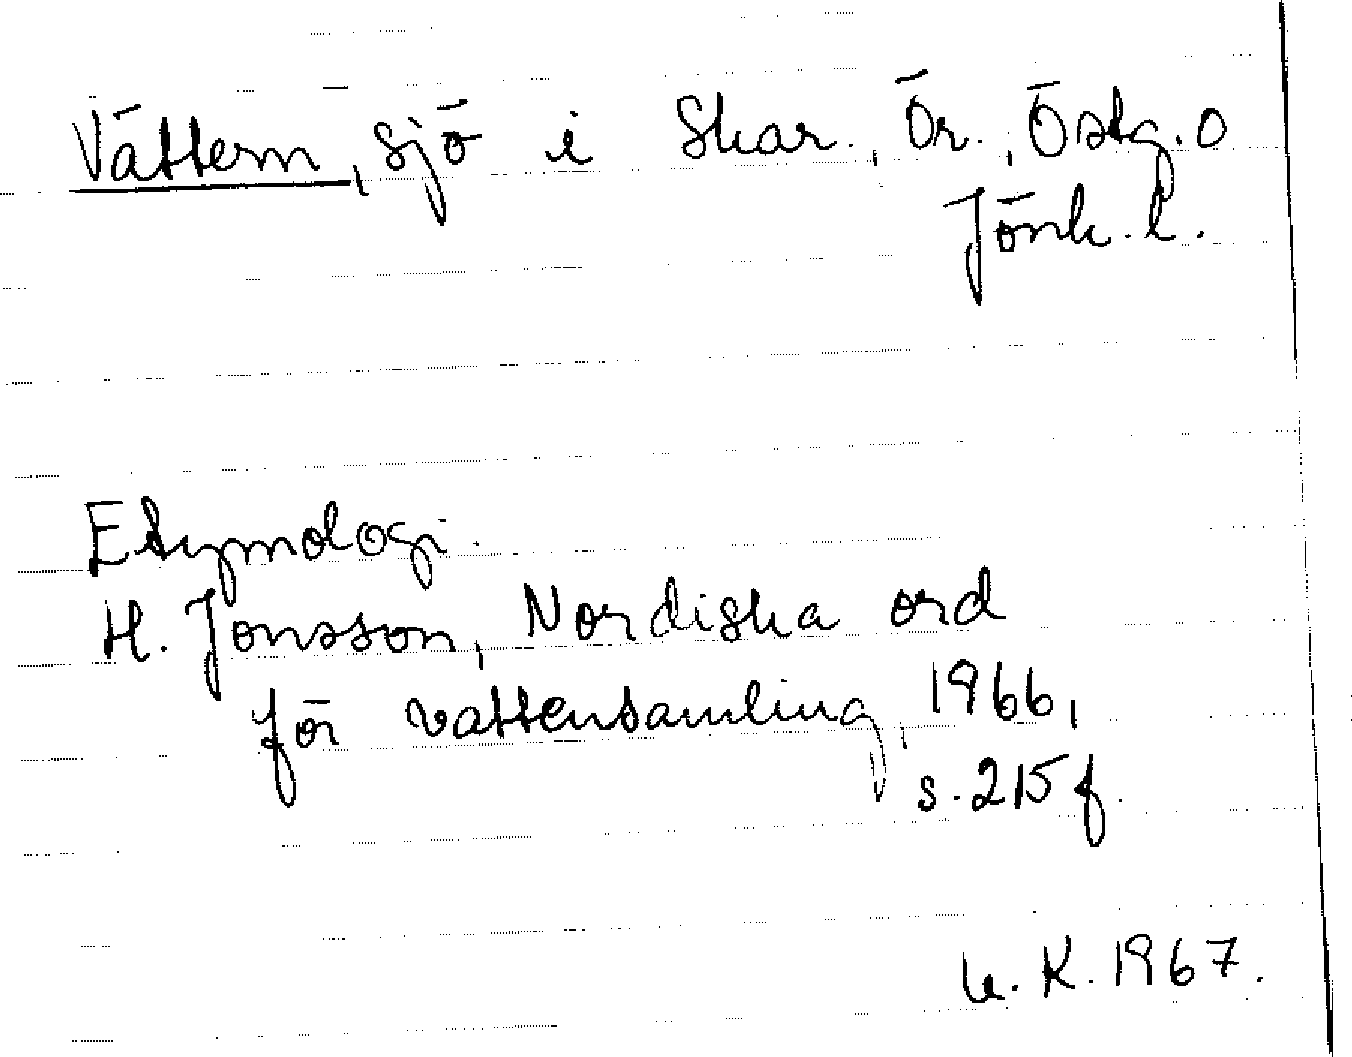 Vättern, sjö i Skar., Ör., Östg. o
Jönk. l.
Etymologi.
H. Jonsson, Nordiska ord
för vattensamling, 1966,
s. 215 f.
K. 1967.